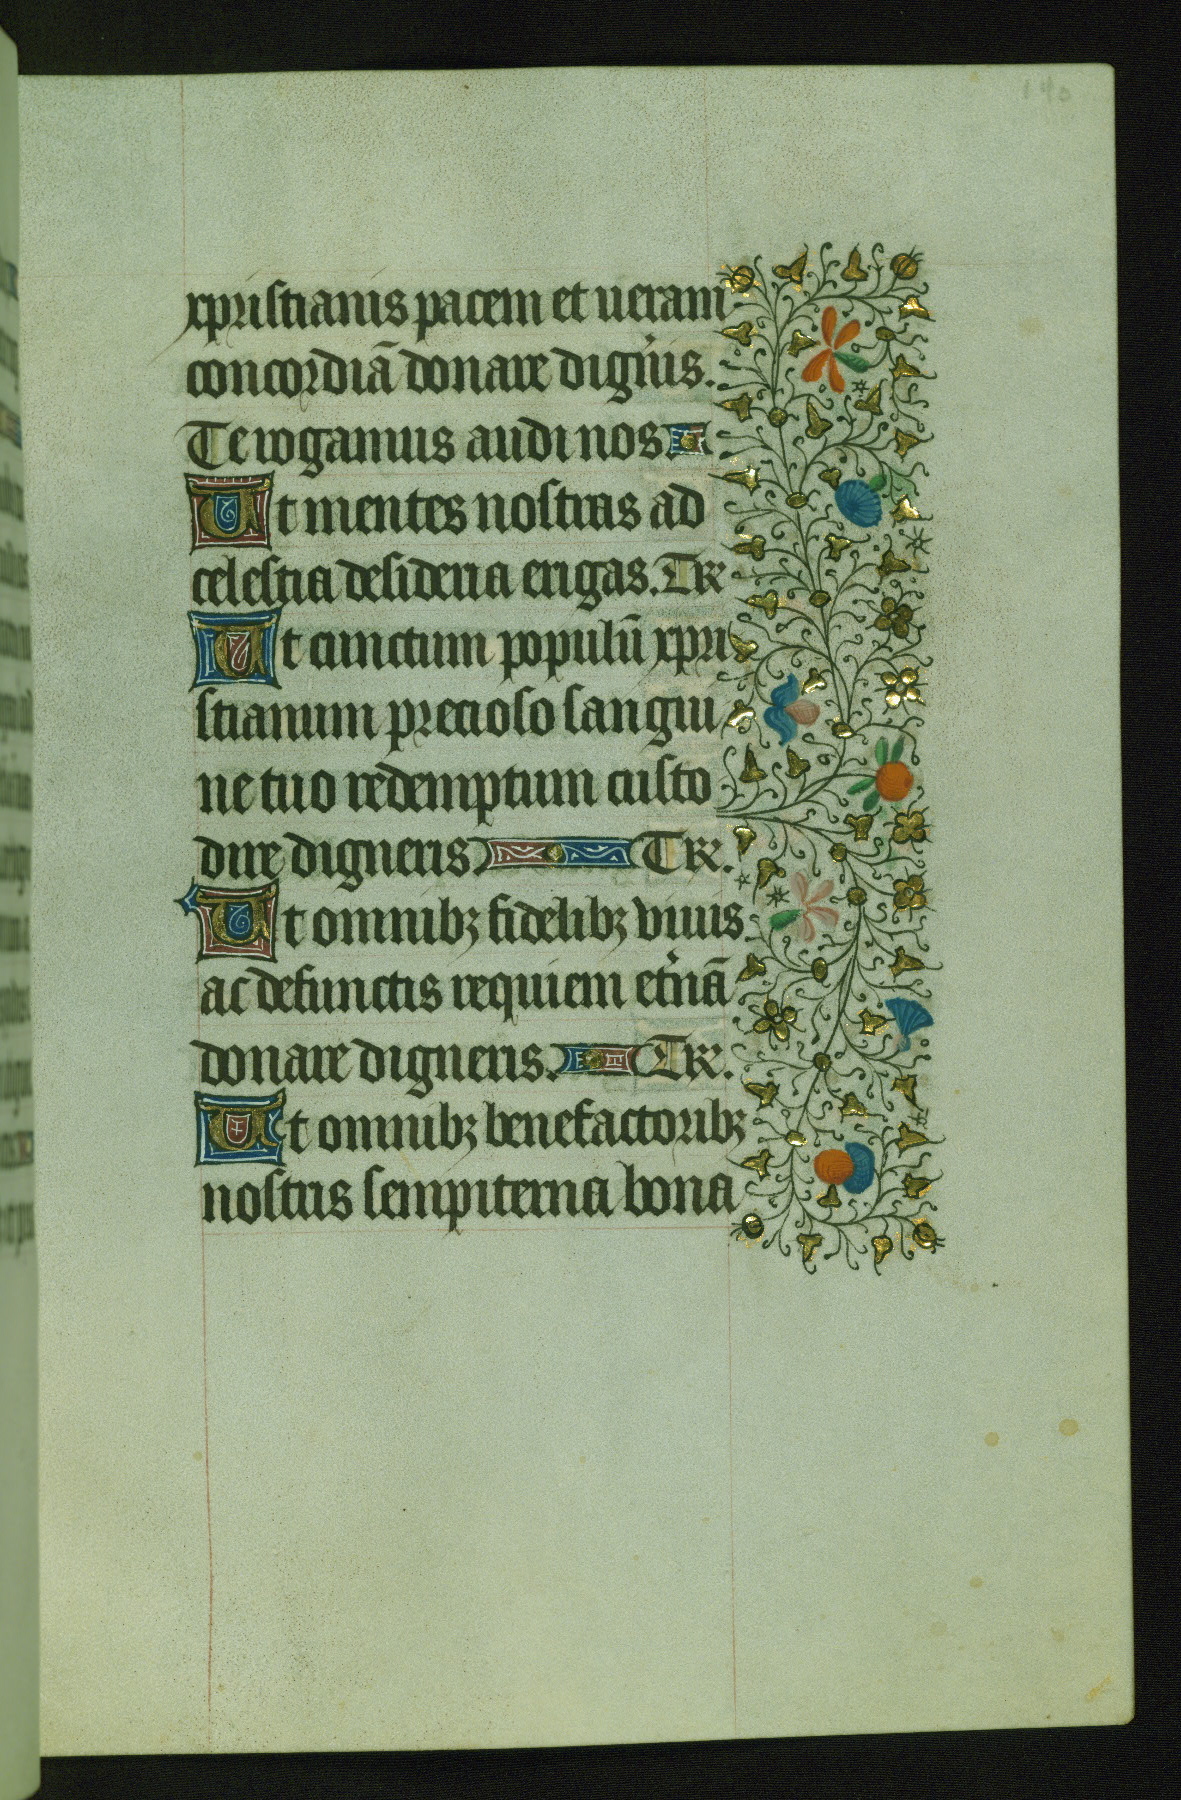 140
xpristianis pacem et ueram
concordiā donare dign̄is.
Te rogamus audi nos
Ut mentes nostras ad
celestia desideria erigas. Tr̄
Ut cunctum populū xpri
stianum precioso sangui
ne tuo redemptum custo
dire digneris Tr̄.
Ut omnibꝫ fidelibꝫ viuis
ac defunctis requiem et̉nā
donare digneris. Tr̄.
Ut omnibꝫ benefactoribꝫ
nostris sempiterna bona